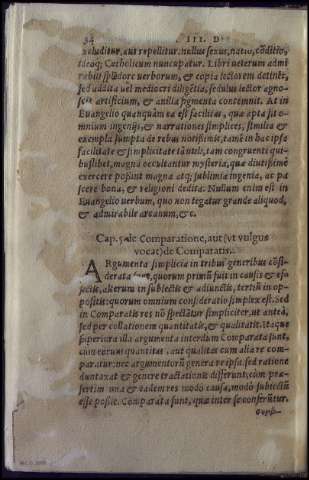 34 III. D
xcluditur, aut repellitur. nullus sexus, natio, cõditio,
ideoq; Catholicum nuncupatur. Libri ueterum admi
rabili splẽdore uerborum, & copia lectorem detinẽt,
sed addita uel mediocri diligẽtia, sedulus lector agno-
scit artificium, & anilia figmenta contemnit. At in
Euangelio quanquàm ea est facilitas, quæ apta sit o-
mnium ingenijs, & narrationes simplices, similia &
exempla sumpta de rebus notißimis, tamẽ in hac ipsa
facilitate & simplicitate tãtula, tam congruenti qui-
buslibet, magna occultantur mysteria, quæ diutißimè
exercere poßint magna atq; sublimia ingenia, ac pa
scere bona, & religioni dedita. Nullum enim est in
Euangelio uerbum, quo non tegatur grande aliquod,
& admirabile arcanum, &c.
Cap. 5. de Comparatione, aut (vt vulgus
vocat) de Comparatis.
ARgumenta simplicia in tribus generibus cõsi-
derata sunt, quorum primũ fuit in causis & ef-
fectis, alterum in subiectis & adiunctis, tertiũ in op-
positis: quorum omnium consideratio simplex est. Sed
in Comparatis res nõ spectãtur simpliciter, ut anteà,
sed per collationem quantitatis, & qualitatis. Itaque
superiora illa argumenta interdum Comparata sunt,
cum eorum quantitas, aut qualitas cum alia re com-
paratur: nec argumentorũ genera re ipsa, sed ratione
duntaxat & genere tractationis differunt: cùm præ-
sertim una & eadem res modò causa, modò subiectũ
esse poßit. Comparata sunt, quæ inter se conferũtur.